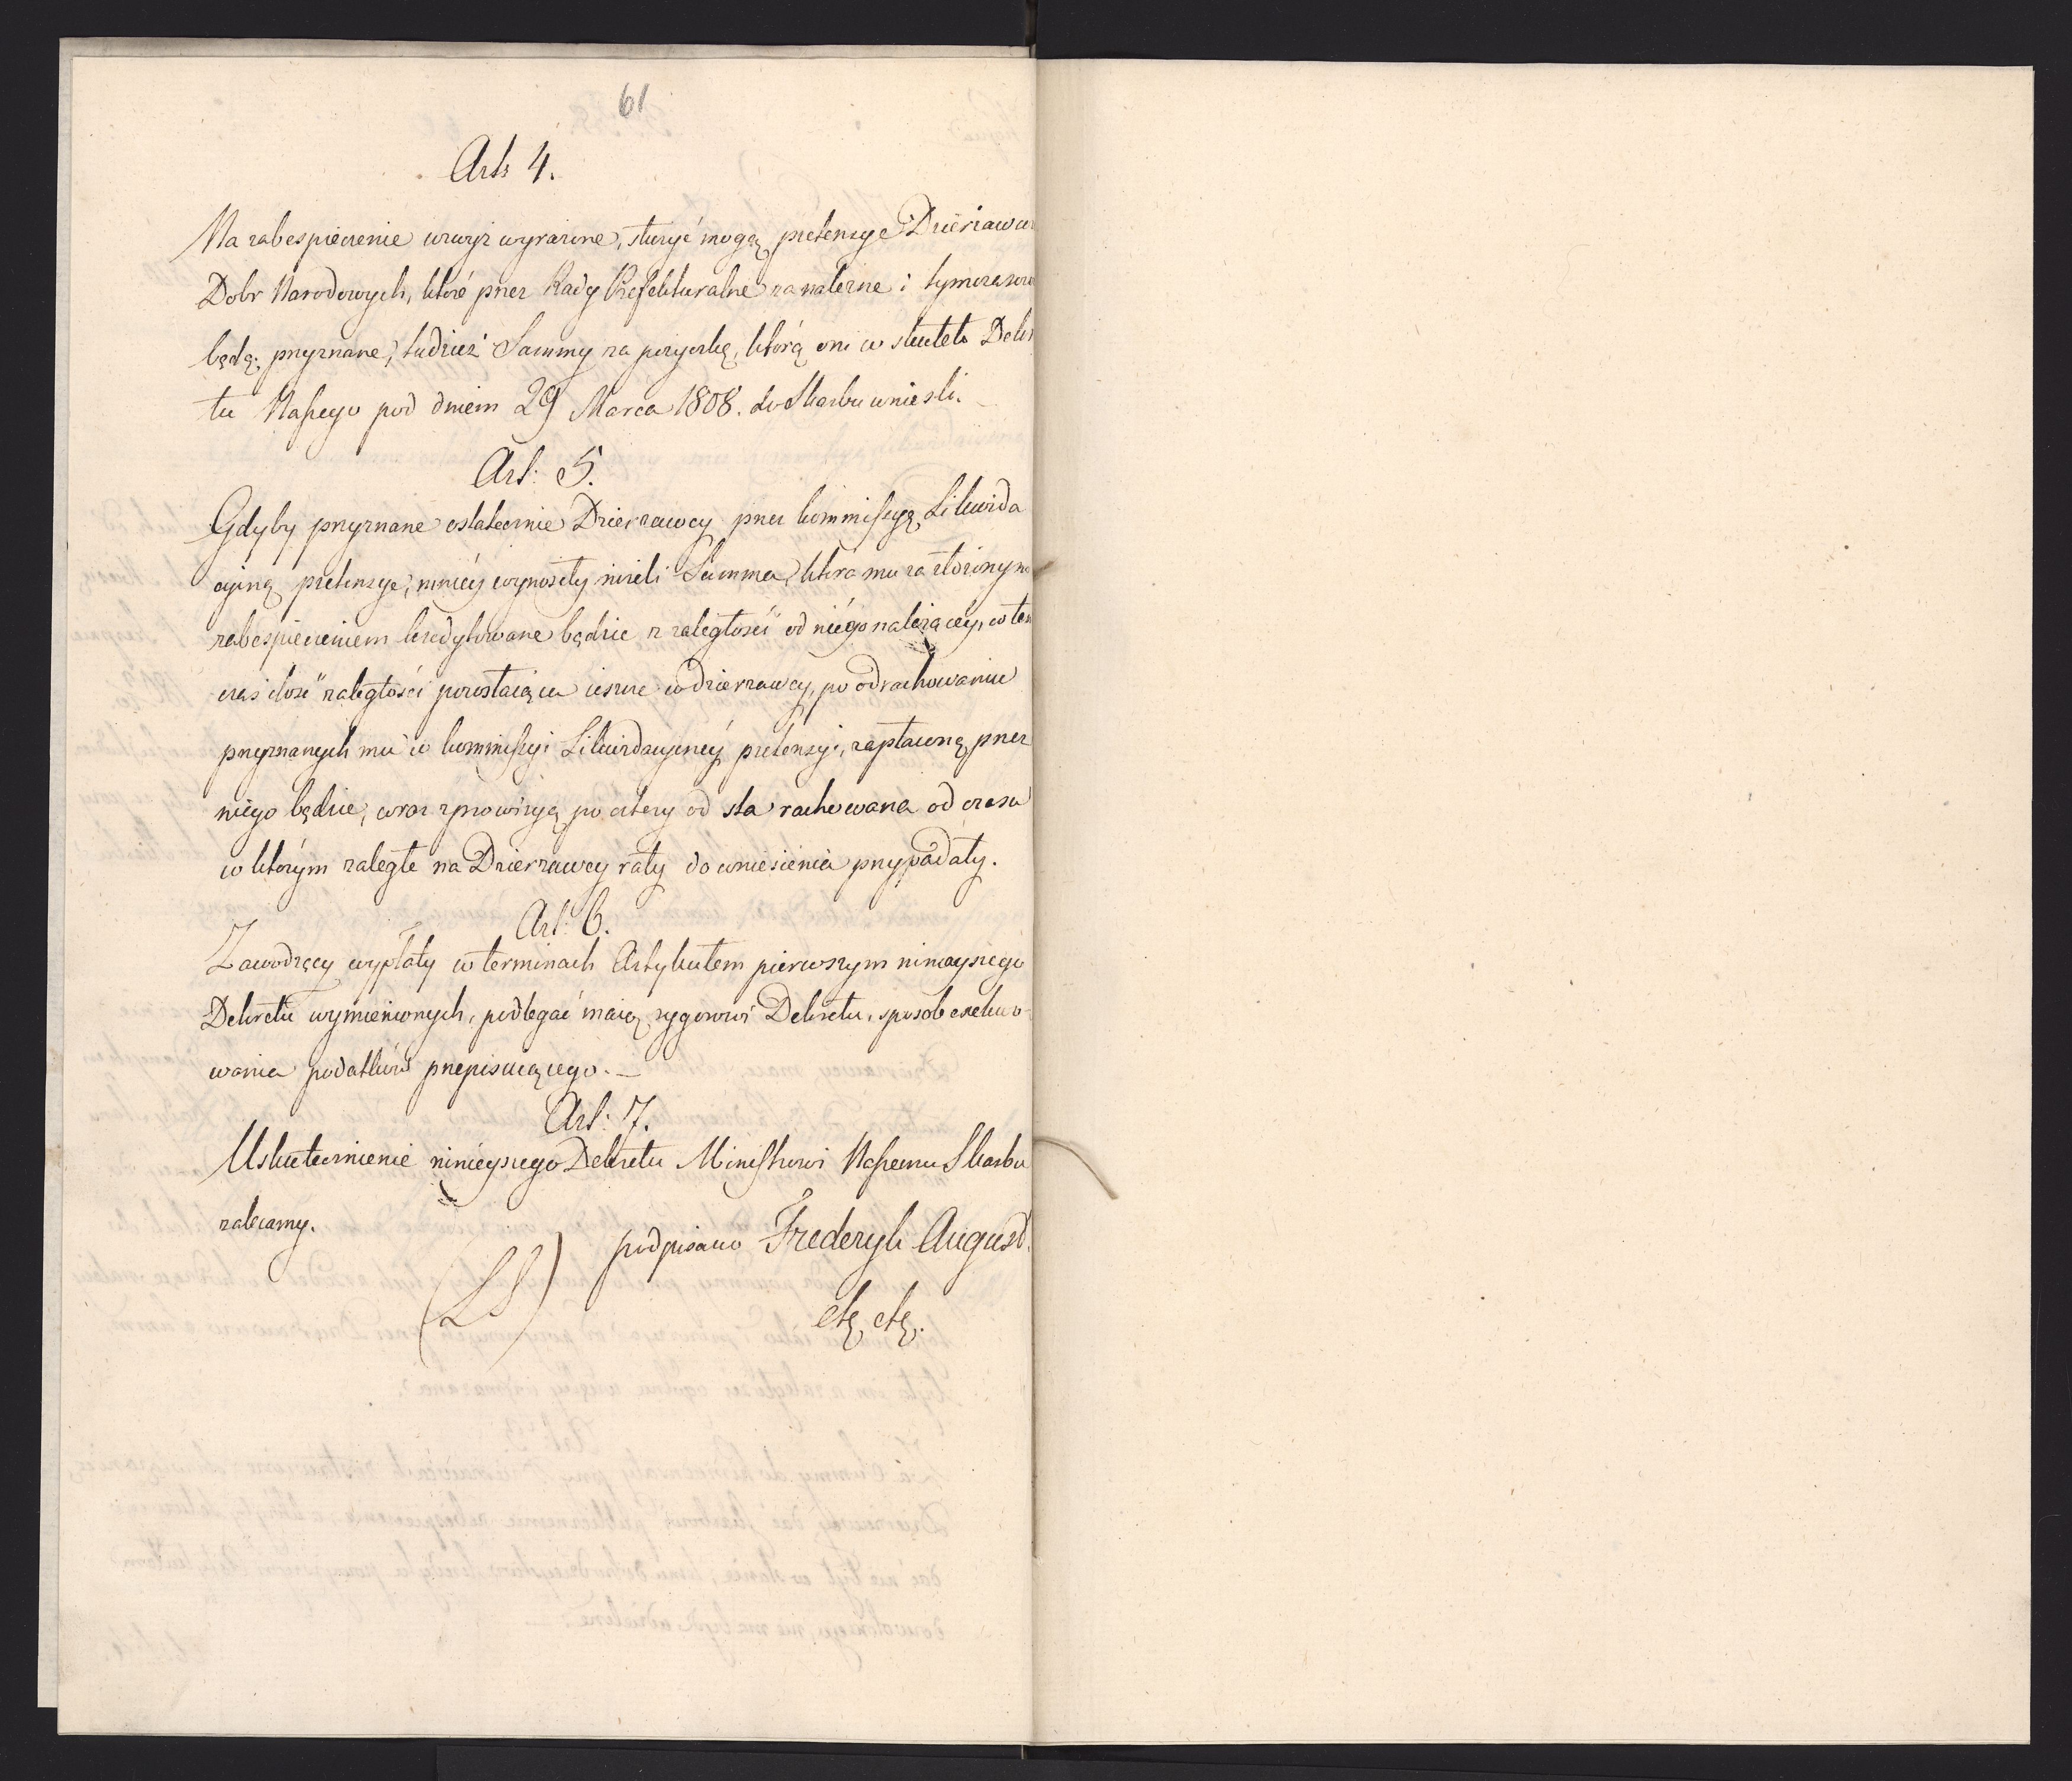 61
Art: 4.
Na zabespieczenie wzwyż wyrażone, służyć mogą pretensye Dzierżawców
Dobr Narodowych, które przez Rady Prefekturalne za należne i tymczasowo
będą przyznane, tudzież Summy za pożyczkę, którą oni w skutek Dekre
tu Naszego pod dniem 29 Marca 1808. do Skarbu wnieśli.
Art: 5.
Gdyby przyznane ostatecznie Dzierzawcy przez kommissyą Likwida
cyiną pretensye, mniéy wynosiły niżeli Summa, która mu za złożonym
zabespieczeniem kredytowane będzie z zaległości od niégo należącéy, w ten
czas ilość zaległości pozostaiąca ieszcze u dzierzawcy, po odrachowaniu
przyznanych mu w kommissyi Likwidacyinéy pretensyi, zapłaconą przez
niego będzie, wraz z prowizyą po cztery od sta rachowana od czasu
w którym zaległe na Dzierzawcy raty do wniesienia przypadały.
Art: 6.
Zawodzący wypłaty w terminach Artykułem pierwszym ninieyszego
Dekretu wymienionych, podlegać maią rygorowi Dekretu, sposób exekwo-
wania podatków przepisuiącego. —
Art: 7.
Uskutecznienie ninieyszego Dekretu Ministrowi Naszemu Skarbu
zalecamy.
podpisano Frederyk August.
(LS)
etc, etc.